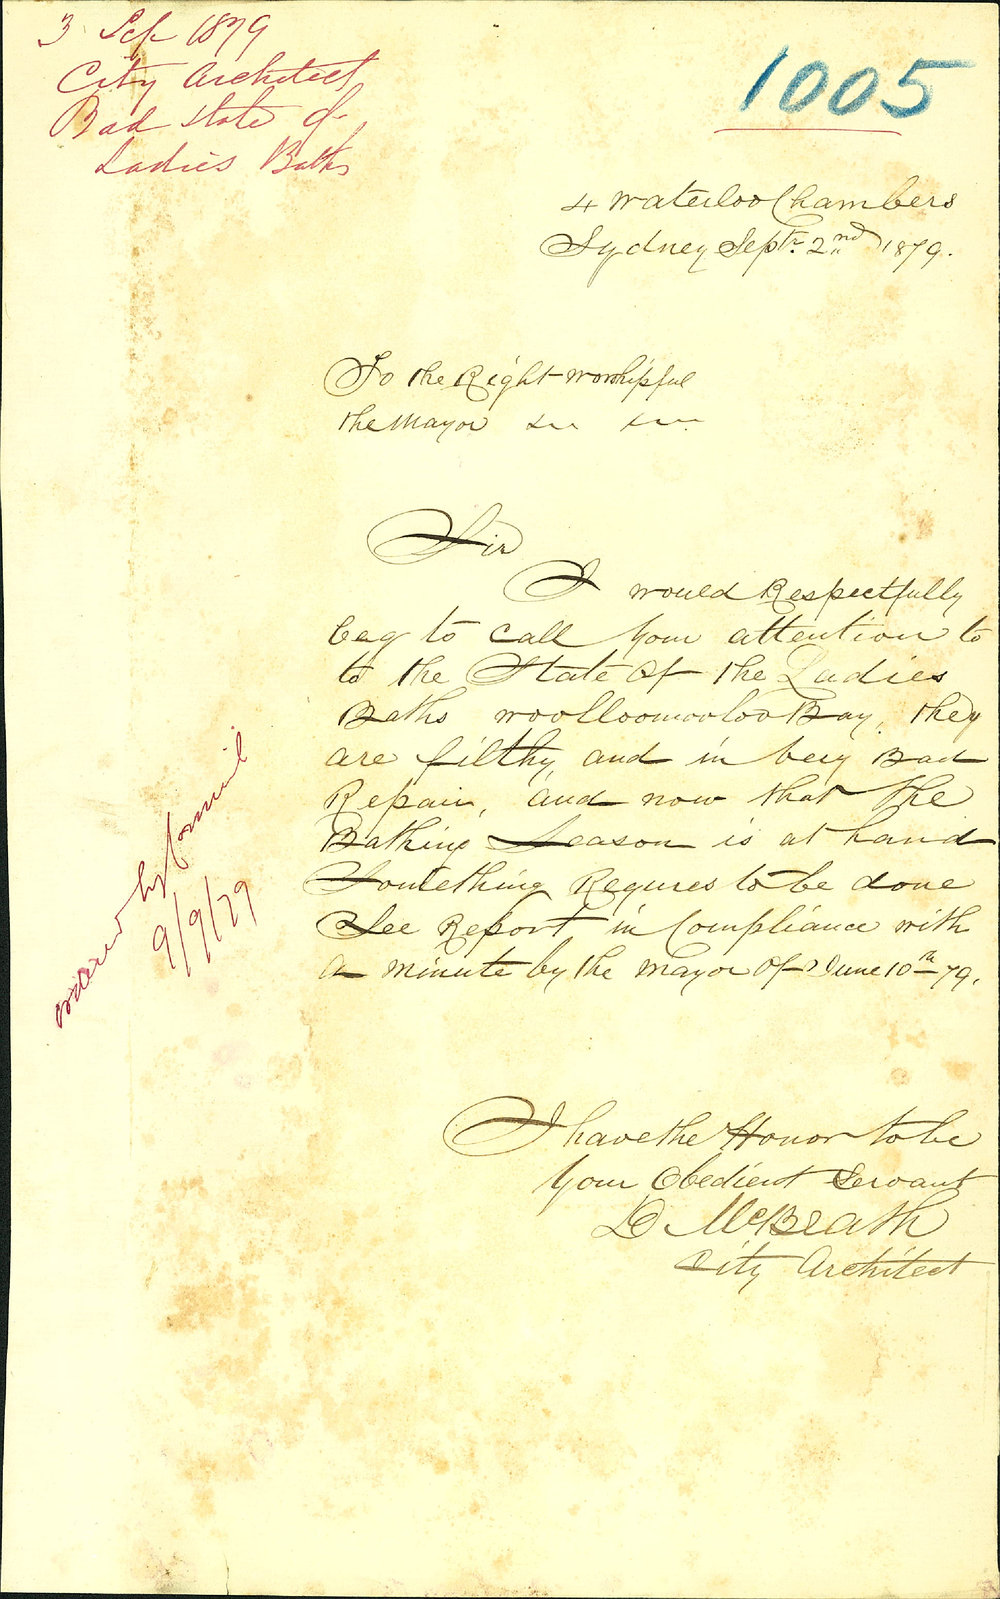 3 Sep 1879
City Architect
Bad state of
Ladies Baths
1005
4 Waterloo Chambers
Sydney Septr. 2nd 1879.
To the Right Worshipful
the Mayor
Sir
I would Respectfully
beg to call your attention to
to the State of the Ladies
Baths Woolloomooloo Bay, they
are filthy, and in very Bad
Repair, and now that the
Bathing Season is at hand
Something Requres to be done
See Report in Compliance with
a minute by the Mayor of June 10th 79.
ordered by
9/9/79
I have the Honor to be
Your Obedient Servant
D McBeath
City Architect